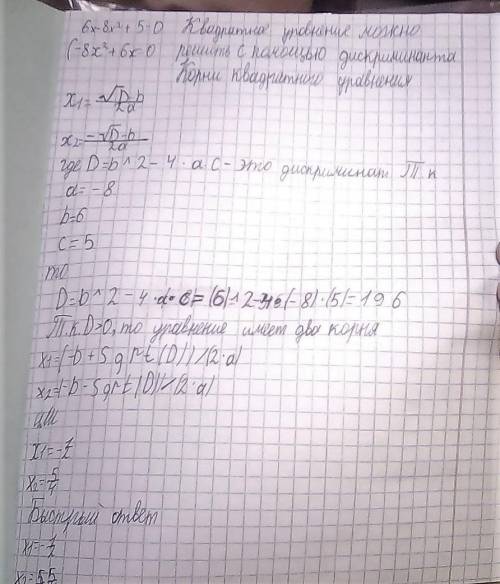 6x-8x²+5=0 Квадратное уравнение можно
(-8x²+6x=0 решить с помощью дискриминанта
Корни квадратного уравнения
x1=√D-b/2a
x2=-√D-b/2a
где D=b^2-4·a·c-это дискриминат Т.к
a=-8
b=6
c=5
то
D=b^2-4·a·c=(6)^2-4·(-8)·(5)=196
Т.к. D>0, то уравнение имеет два корня
x1=(-b+Sqrt(D))/(2·a)
x2=(-b-Sqrt(D))/(2·a)
или
x1=-1/2
x2=5/4
Быстрый ответ
x1=-1/2